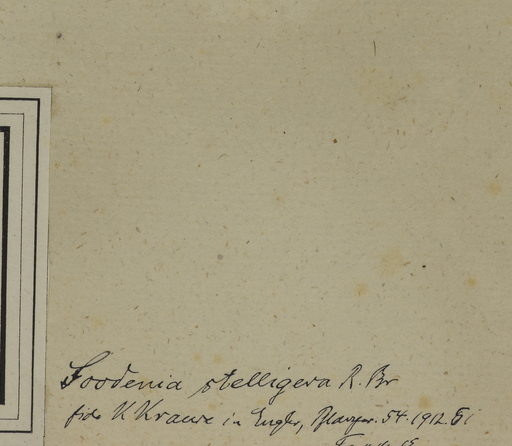 Goodenia stelligera R. Br
fide K Krause in Engler, Pflanzenr. 54. 1912. 51